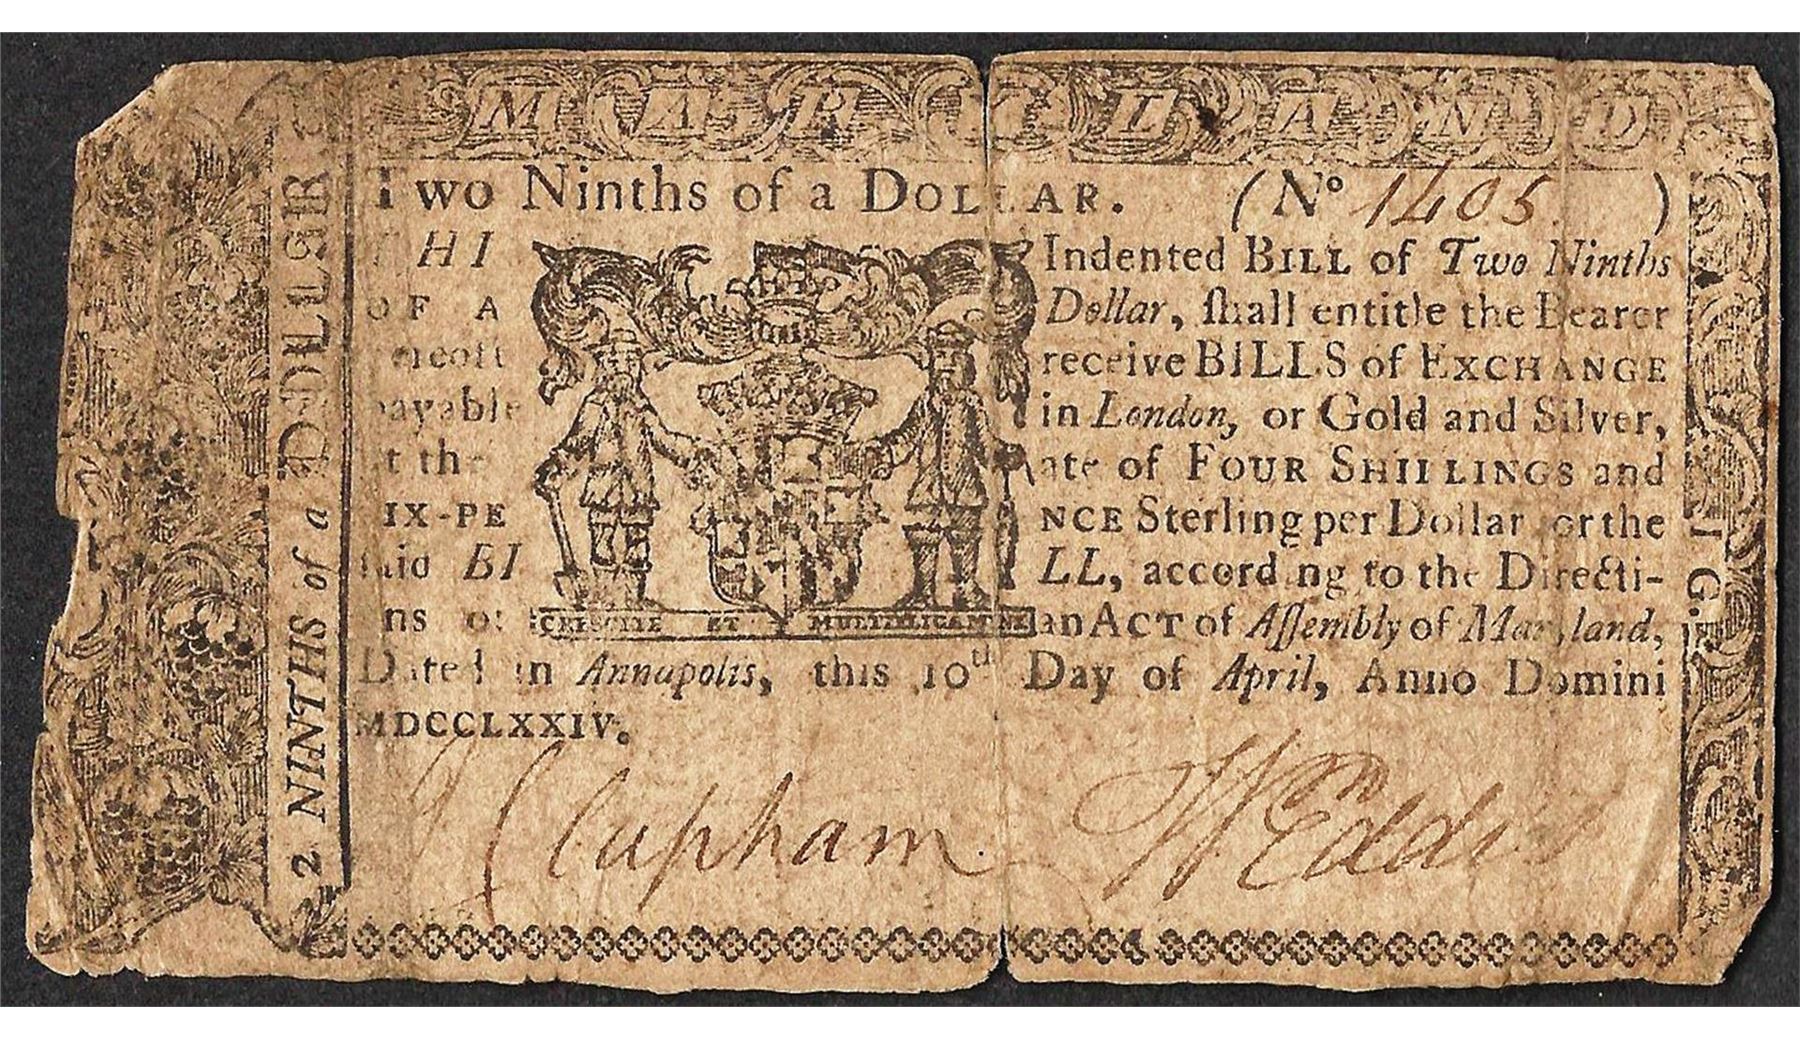 MARYLAND
Two Ninths of a DOLLAR. (No 1405 )
THI Indented BILL of Two Ninths
OF A Dollar, ſhall entitle the Bearer
receive BILLS of EXCHANGE
payable in London, or Gold and Silver,
at the ate of FOUR SHILLINGS and
IX-PE NCE Sterling per Dollar for the
ſaid BI LL, according to the Directi-
ns of an ACT of Aſſembly of Maryland,
Dated in Annapolis, this 10th Day of April, Anno Domini
MDCCLXXIV.
CRESCITE ET MULTIPLICAMINI
J Clapham Wm Eddis
2 NINTHS of a DOLLAR
I G.